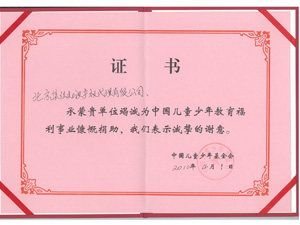 证 书
北京
有限公司：
承蒙贵单位竭诚为中国儿童少年教育福
利事业慷慨捐助，我们表示诚挚的谢意。
中国儿童少年基金会
年 月 日